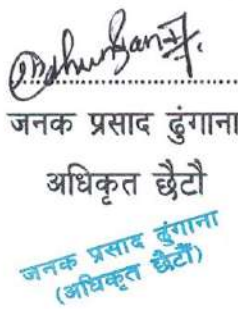 जनक प्रसाद ढुंगाना
अधिकृत छैटौ
जनक प्रसाद ढुंगाना
(अधिकृत छैटौं)